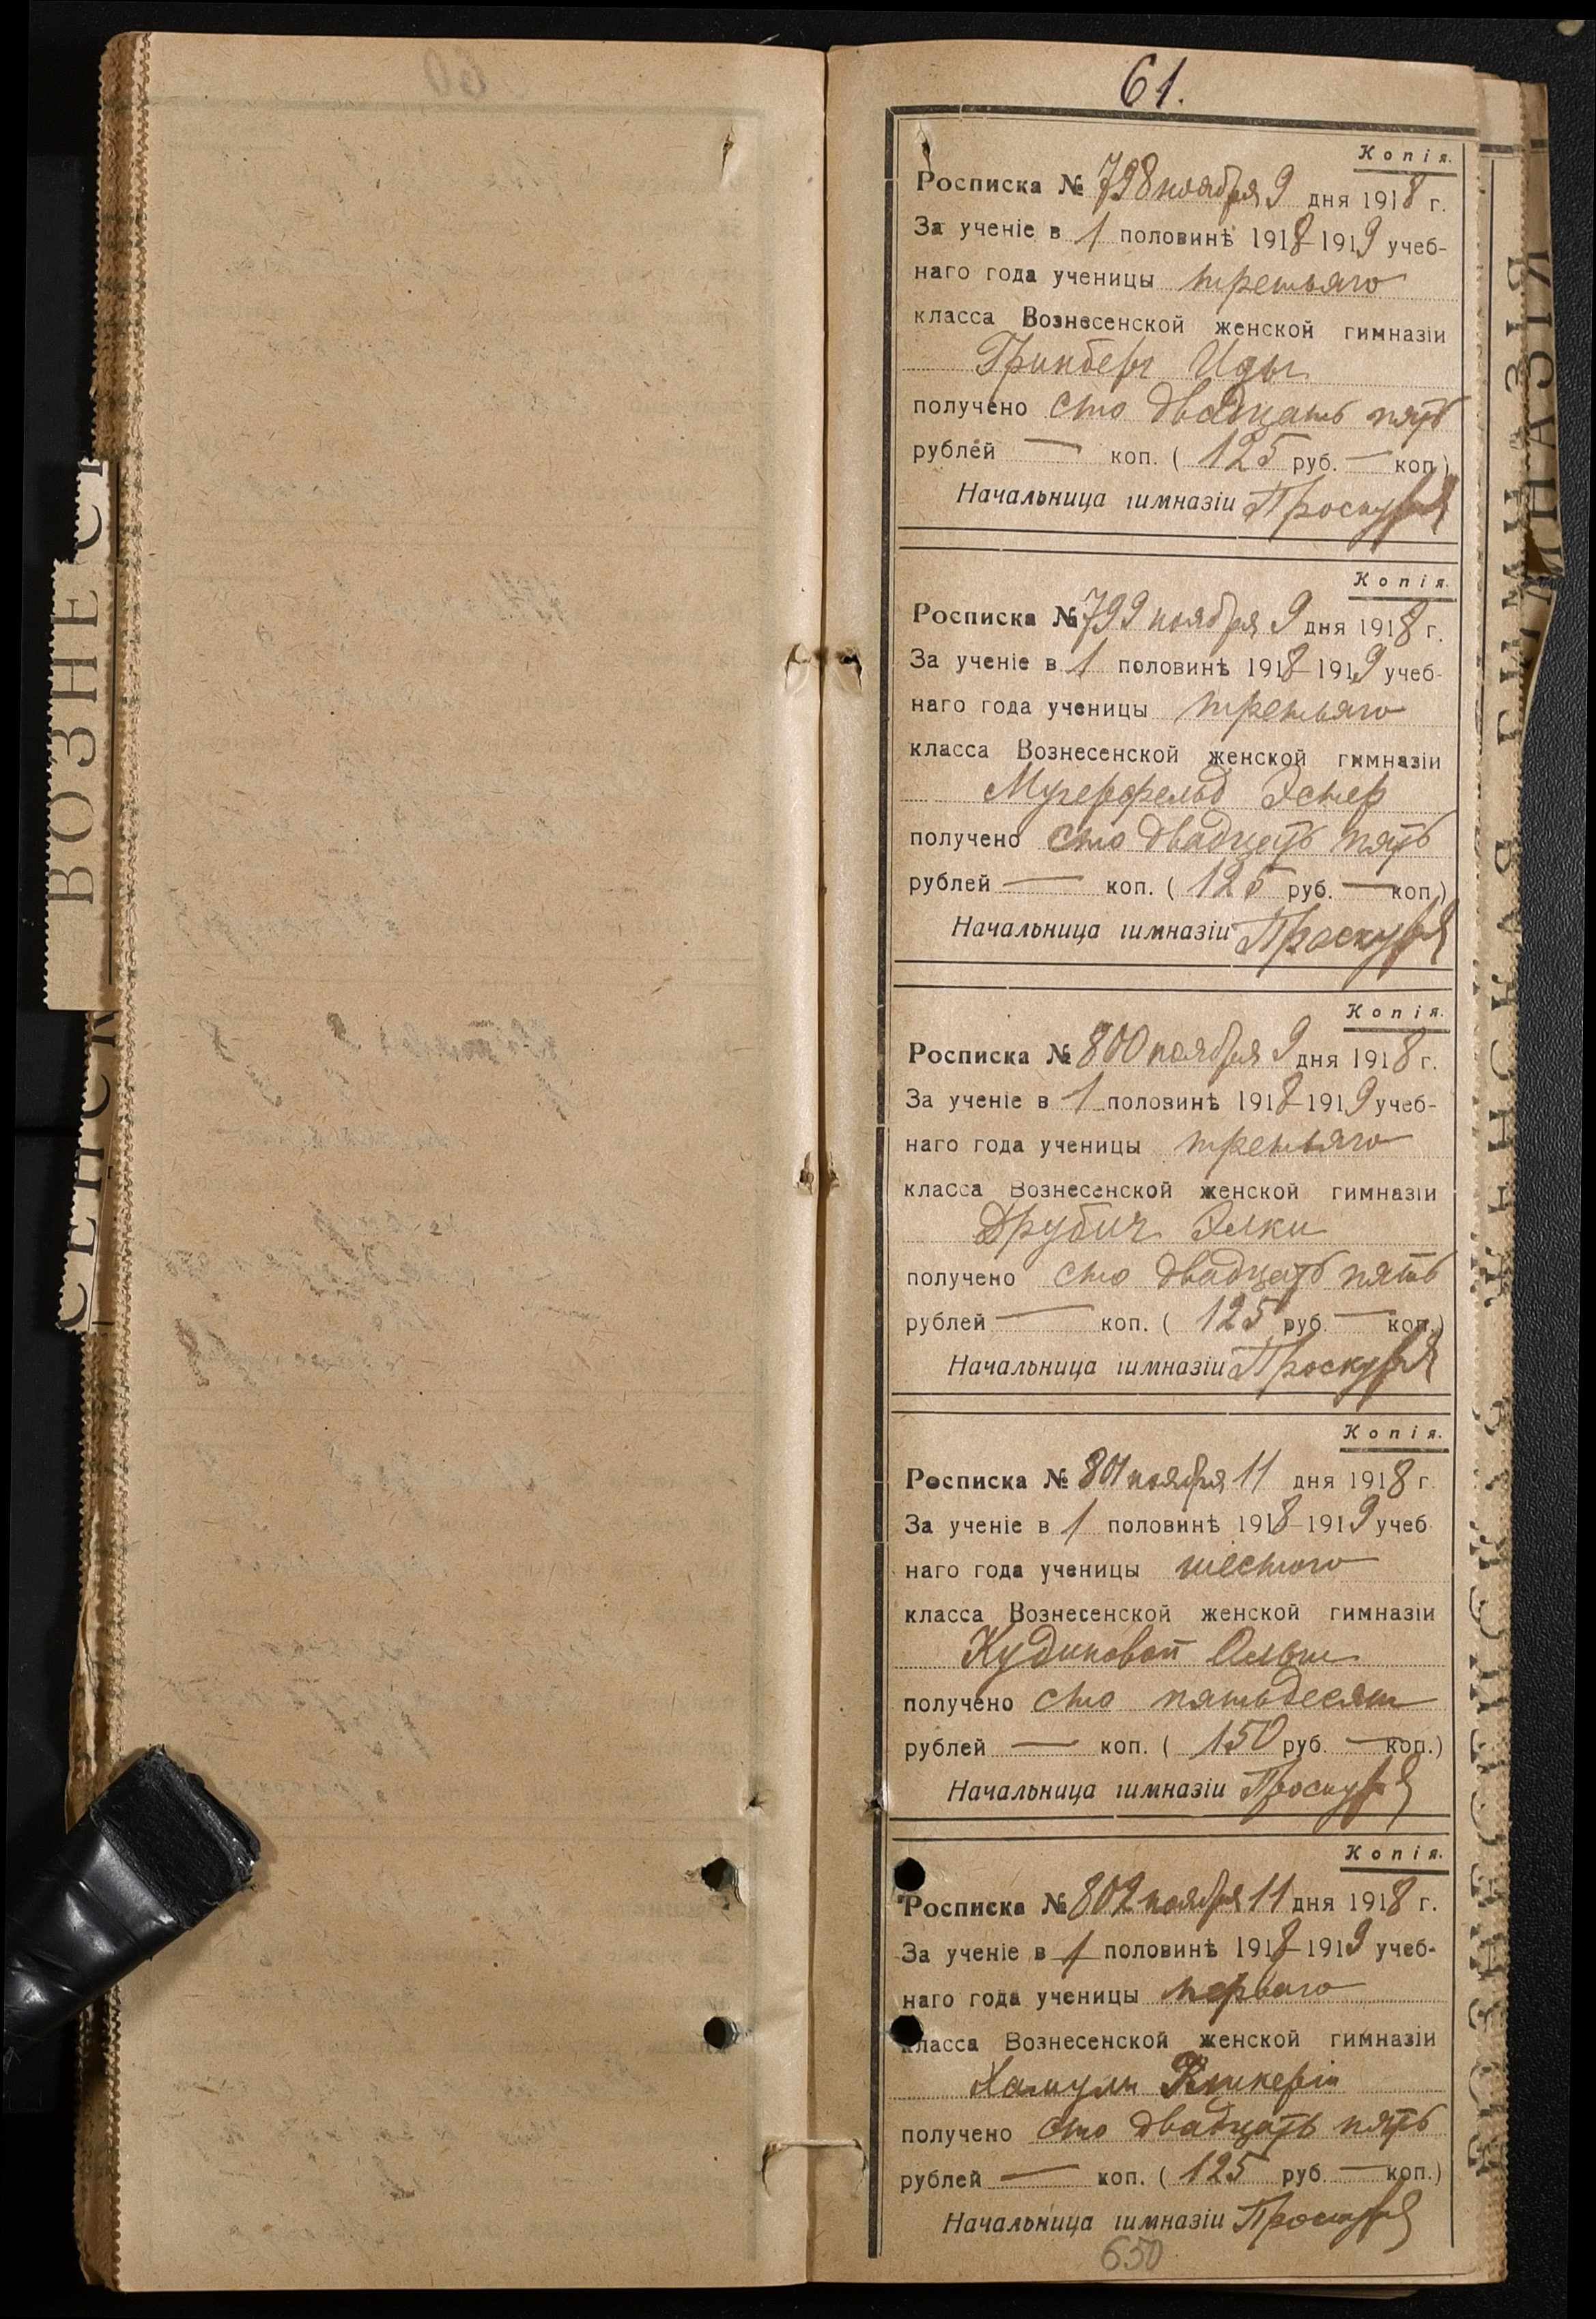 61.
Копія.
Росписка № 798 ноября 9 дня 1918 г.
За ученіе в 1 половинѣ 1918-1919 учеб-
наго года ученицы третьяго
класса Вознесенской женской гимназіи
Гринберг Иды
получено сто двадцать пять
рублей — коп. ( 125 руб. — коп.)
Начальница гимназіи
Копія.
Росписка № 799 ноября 9 дня 1918 г.
За ученіе в 1 половинѣ 1918-1919 учеб-
наго года ученицы третьяго
класса Вознесенской женской гимназіи
Мучерфельд Эстер
получено сто двадцать пять
рублей — коп. ( 125 руб. — коп.)
Начальница гимназіи
Копія.
Росписка № 800 ноября 9 дня 1918 г.
За ученіе в 1 половинѣ 1918-1919 учеб-
наго года ученицы третьяго
класса Вознесенской женской гимназіи
Друбич Элки
получено сто двадцать пять
рублей — коп. ( 125 руб. — коп.)
Начальница гимназіи
Копія.
Росписка № 801 ноября 11 дня 1918 г.
За ученіе в 1 половинѣ 1918-1919 учеб
наго года ученицы шестого
класса Вознесенской женской гимназіи
Кудиновой Ольги
получено сто пятьдесят
рублей — коп. ( 150 руб. — коп.)
Начальница гимназіи
Копія.
Росписка № 802 ноября 11 дня 1918 г.
За ученіе в 1 половинѣ 1918-1919 учеб-
наго года ученицы перваго
класса Вознесенской женской гимназіи
получено сто двадцать пять
рублей — коп. ( 125 руб. — коп.)
Начальница гимназіи
650
ВОЗНЕ